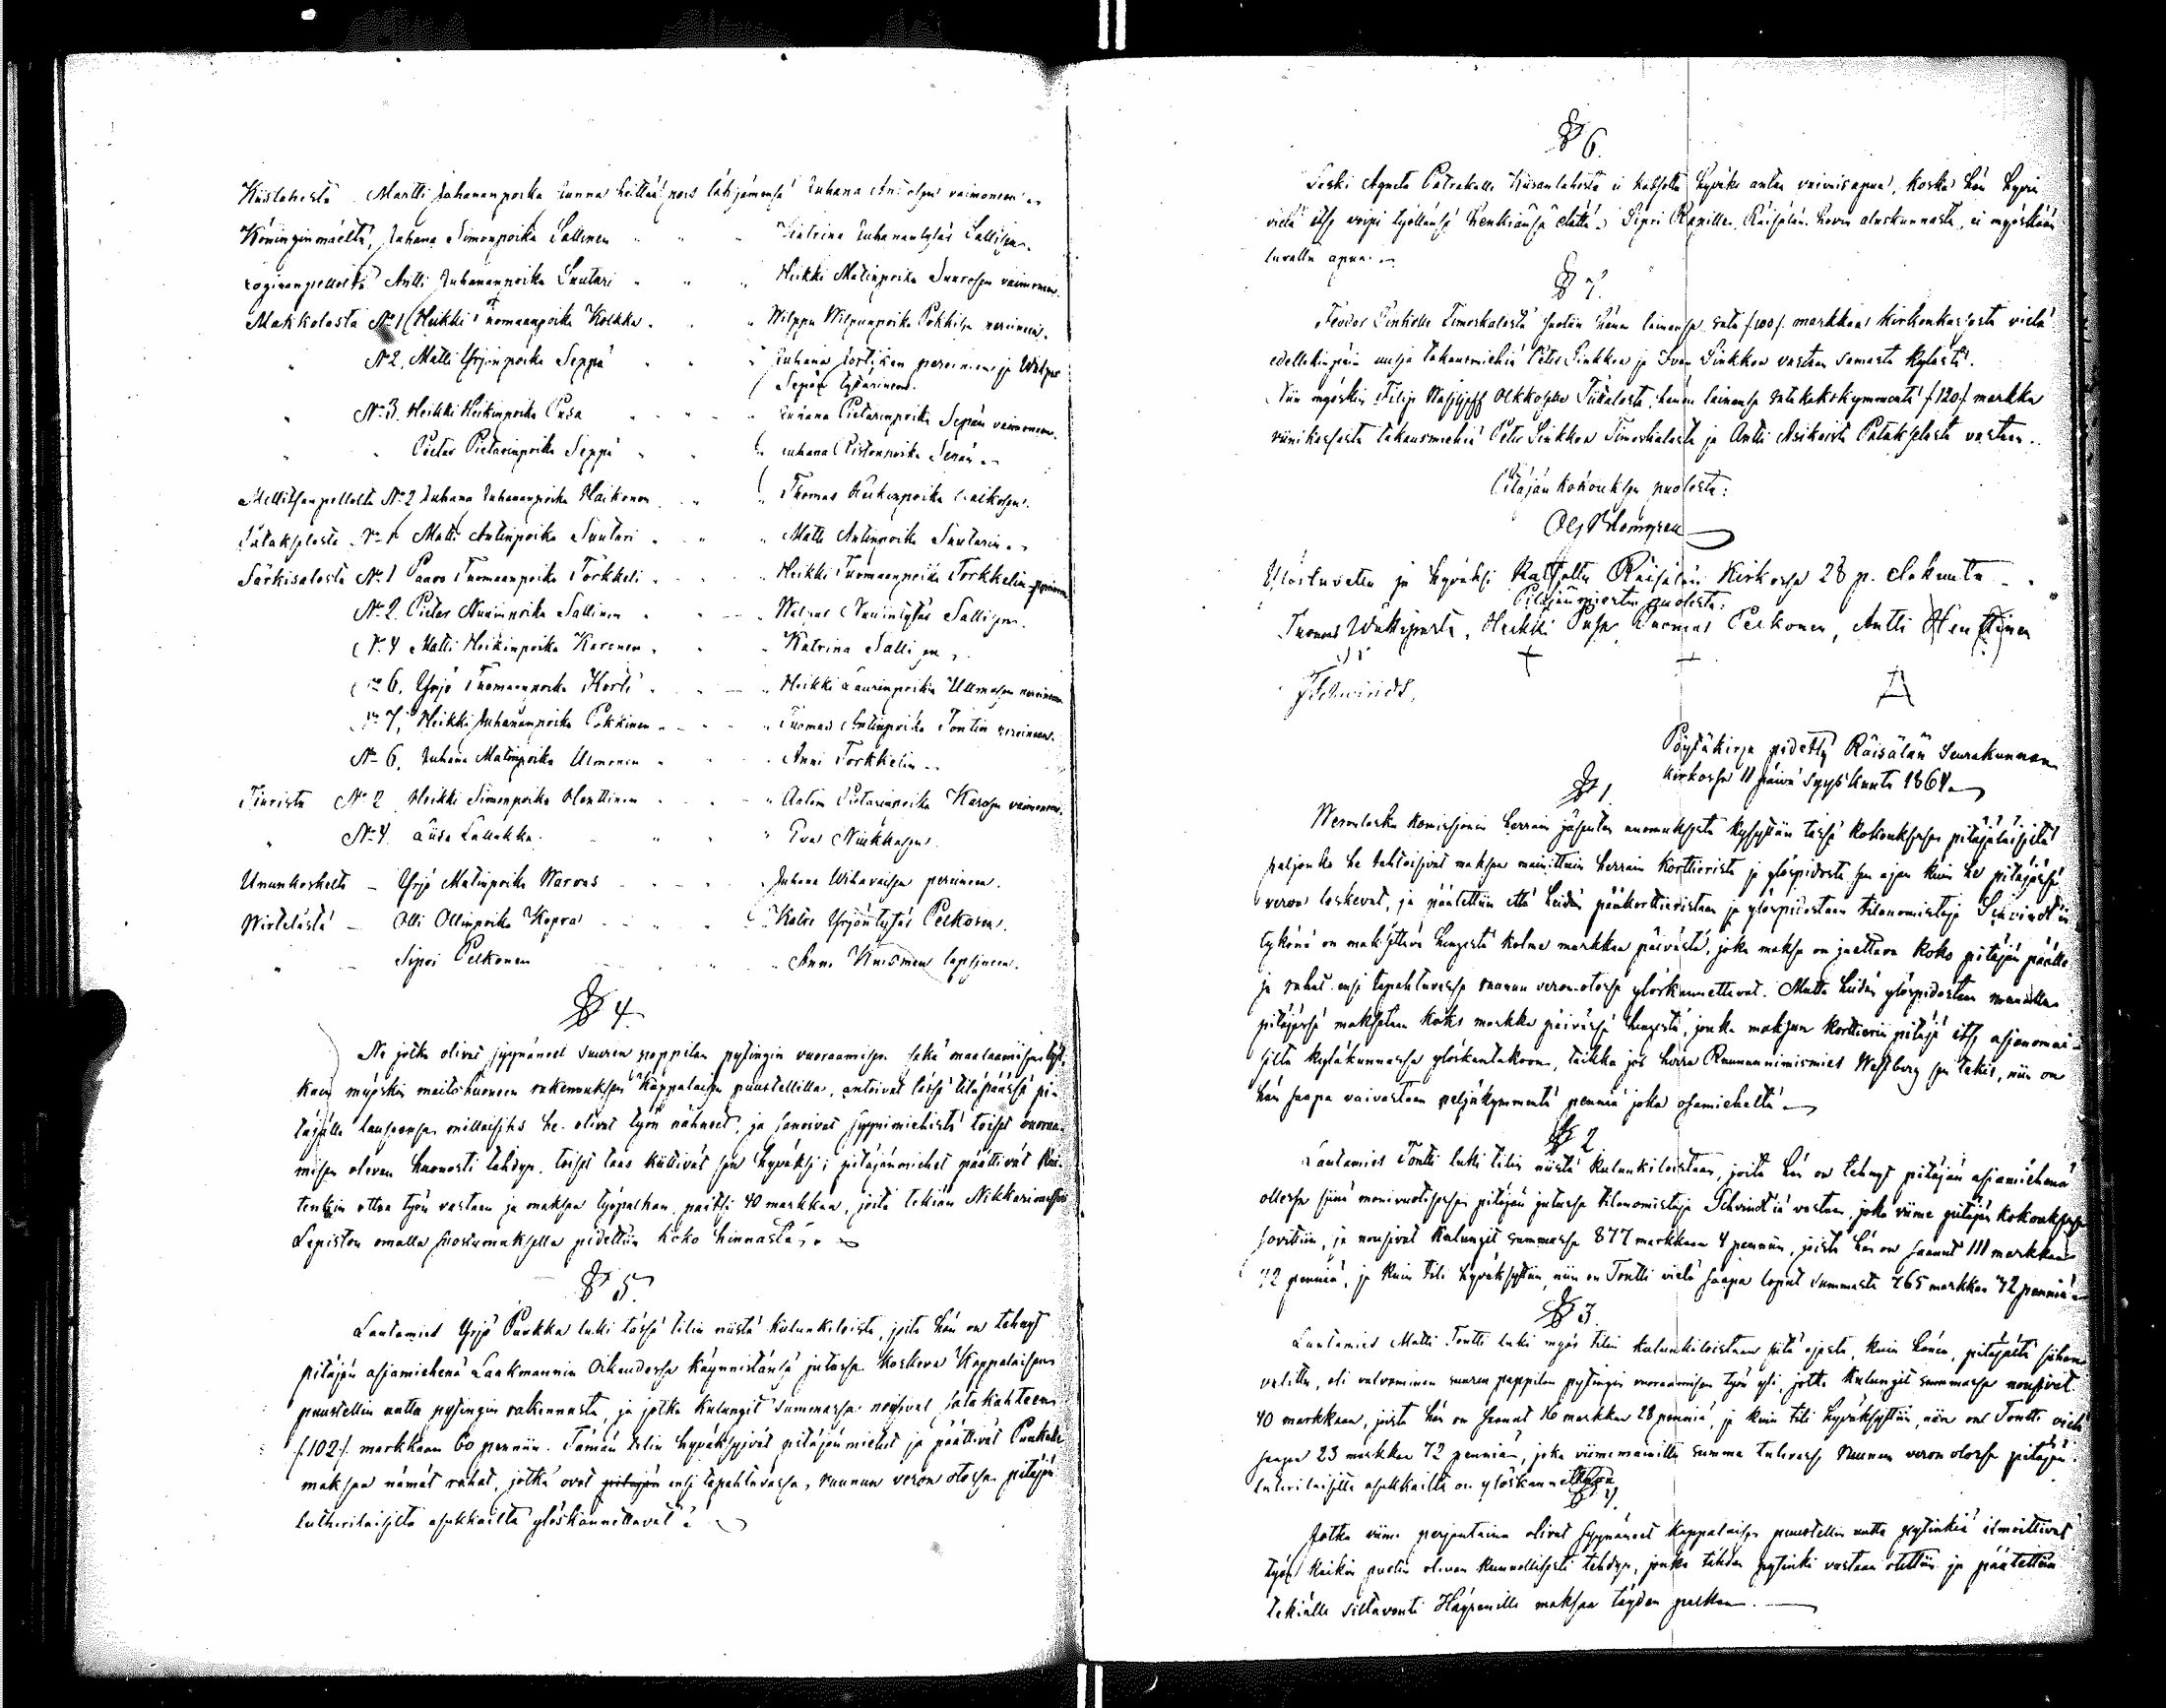 Martti Juhananpoika Sunna heittää pois lähjämensä Juhana vaimonen
Köninginmäeltä, Juhana Simonpoika Sallinen " " Katrina Juhanantytär Sallisen.
Antti Juhananpoika Suutari " " " Heikki Matinpoika Suurosen vaimonen.
Makkolasta No 1 Heikki Tuomaanpoika Kolkka " Wilppu Wilpunpoika Pokkisen pereineen.
" No 2. Matti Yrjönpoika Seppä " " Juhana pereineen ja Walpu
Sepän tyttärineen.
" No 3. Heikki Heikinpoika Pusa " Juhana Pietarinpoika Sepän vaimoneen.
" " Pietar Pietarinpoika Seppä " " Juhana Ristonpoika Sepän
No 2 Juhana Juhananpoika Haikonen " Thomas Heikinpoika
No 1 Matti Antinpoika Suutari " " Matti Antinpoika Suutarin
Särkisalosta No 1 Paavo Tuomaanpoika Torkkeli " Heikki Tuomaanpoika Torkkelin
No 2. Pietar Sallinen " Walpuri Sallisen.
No 4 Matti Heikinpoika Karonen " " Katrina Sallisen
No 6. Yrjö Thomaanpoika Horti " Heikki Laurinpoika Ulmasen pereineen
No 7, Heikki Juhananpoika Pokkinen " Tuomas Antinpoika Tontin pereineen.
No 6. Juhana Matinpoika Ulmonen " " Anni Torkkelin
Tiurista No 2 Heikki Simonpoika Henttinen " Antin Pietarinpoika Karosen vaimonen.
" No 4. Liisa Lallukka " " Eva Niukkasen.
Ununkoskelta – Yrjö Matinpoika Warvas " Juhana Wihavaisen pereineen.
– Olli Ollinpoika Kopra " Katri Yrjöntytär Pelkosen.
" – Sipri Pelkonen " " Anni Kuisman lapsineen.
§ 4.
Ne jotka olivat syynäneet suuren pappilan pytingin vuoraamisen sekä maalaamisen
kuin myöskin maitohuoneen rakennuksen Kappalaisen puustellilla, antoivat tässä tilapäässä pi-
täjälle lauseensa millaiseks he olivat työn nähneet, ja sanoivat syynimiehistä toiset vuoraa-
misen olevan huonosti tehdyn, toiset taas kiittivät sen hyväksi; pitäjänmiehet päättivät kui-
tenkin ottaa työn vastaan ja maksaa työpalkan, paitsi 40 markkaa, joita tekiän Nikkari
Lepiston omalla suostumuksella pidettiin koko hinnasta.
§ 5.
Lautamies Yrjö Paukka luki tässä tilin niistä kulunkiloista, joita hän on tehnyt
pitäjän asjamiehenä Laakmannin Oikeudessa käynnistänsä jutussa koskeva Kappalaisen
puustellin uutta pytingin rakennusta, ja jotka kulungit summassa nousivat sata kahteen
/:102:/ markkaan 60 penniin. Tämän tilin hyväksyivät pitäjän miehet ja päättivät Paukalle
maksaa nämät rahat, jotka ovat pitäjän ensi tapahtuvassa, ruunun veron otossa pitäjän
lutherilaisilta asukkailta ylöskannettavat.
§ 6.
Leski Agneta Patrakalle Hiisanlahesta ei katsottu hyväksi antaa vaivaisapua, koska hän hyvin
vielä itse voipi työllänsä henkiänsä elättä. Sipri Räisälän hovin aluskunnasta, ei myöskään
luvattu apua.
§ 7.
Feodor Sinkolle Timoskalasta suotiin hänen lainansa sata /:100:/ markkaa kirkonkassasta vielä
edellekinpäin uutta takausmiehiä Peter Sinkkoa ja Ivan Sinkkoa vastaan samasta kylästä.
Niin myöskin Filip Wasiljeff Olkkoselle Tiukalasta, hänen lainansa satakakskymmentä /:120:/ markkaa
viinikassasta takausmiehiä Peter Sinkkoa Timoskalasta ja Antti Asikaista vastaan.
Pitäjän kokouksen puolesta:
Ols Thomsen
Ylösluvettu ja hyväksi katsottu Räisälän Kirkossa 28 p. elokuuta
Pitäjänmiesten puolesta:
Tuomas Heikki Pusa, Tuomas Pelkonen, Antti Henttinen
Pöytäkirja pidetty Räisälän Seurakunnan
kirkossa 11 päivä Syyskuuta 1864.
§ 1.
Weronlasku Komissjonin herrain jäsenten anomuksesta kysyttiin tässä kokouksessa pitäjäläisiltä
paljonko he tahtoisivat maksaa mainittuin herrain kortterista ja ylöspidosta sen ajan kuin he pitäjässä
veroa laskevat, ja päätettiin että heidän pääkortteristaan ja ylöspidostaan tilanomistaja Schvindt'in
tykönä on maksettava hengestä kolme markkaa päivästä, joka maksu on jaettava koko pitäjän päälle
ja rahat ensi tapahtuvassa ruunun veron otossa ylöskannettavat. Mutta heidän ylöspidostaan muualla
pitäjässä maksetaan kaks markkaa päivässä hengestä, jonka maksun kortterin pitäjä itse asjanomai-
silta kyläkunnassa ylöskantakoon, taikka jos herra Ruununnimismies Westberg sen tekis, niin on
hän saapa vaivastaan neljäkymmentä penniä joka osamieheltä.
§ 2
Lautamies Tontti luki tilin niistä kulunkiloistaan, joita hän on tehnyt pitäjän asjamiehenä
ollessa siinä monivuotisessa pitäjän jutussa tilanomistaja Schvindt'iä vastaan, joka viime pitäjän kokouksessa
sovittiin, ja nousivat kulungit summassa 877 markkaan 4 penniin, joista hän on saanut 111 markkaa
32 penniä, ja kuin tili hyväksyttiin, niin on Tontti vielä saapa loput summasta 765 markkaa 72 penniä.
§ 3
Lautamies Matti Tontti luki myös tilin kulunkiloistaan siitä ajasta, kuin hänen, pitäjältä siihen
valittu, oli valvominen suuren pappilan pytingin vuoraamisen työn yli, jotka kulungit summassa nousivat
40 markkaan, joista hän on saanut 16 markkaa 28 penniä, ja kuin tili hyväksyttiin, niin on Tontti vielä
saapa 23 markkaa 72 penniä, joka viimemainittu summa tulevassa Ruunun veron otossa pitäjän
lutherilaisilta asukkailta on ylöskannettava.
§ 4.
Jotka viime perjantaina olivat syynäneet Kappalaisen puustellin uutta pytinkiä ilmoittivat
työn kaikin puolin olevan kunnollisesti tehdyn, jonka tähden pytinki vastaan otettiin ja päätettiin
tekiälle siltavouti Häyseville maksaa täyden palkan.